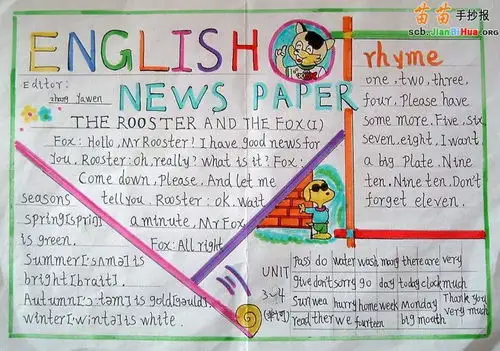 苗苗手抄报
scb.JianBiHua.ORG
ENGLISH
NEWS PAPER
Editor:
zhang Yawen
THE ROOSTER AND THE FOX(1)
Fox: Hollo, Mr Rooster! I have good news for
You. Rooster: oh, really? what is it? Fox:
Come down, Please. And let me
tell you. Rooster: ok. wait
a minute, Mr Fox.
Fox: All right
seasons
spring[spriŋ]
is green.
Summer['sʌmə] is
bright[brait].
Autumn['ɔ:təm] is gold[gəuld].
winter['wintə] is white.
rhyme
one, two, three,
four. Please have
some more. Five, six
seven, eight. I want
a big Plate. Nine
ten. Nine ten. Don't
forget eleven.
UNIT
3~4
pass do water wash many there are very
give don't sorry go day today clock much
Sun wea hurry home week Monday Thank you
read ther we fourteen big mouth very much